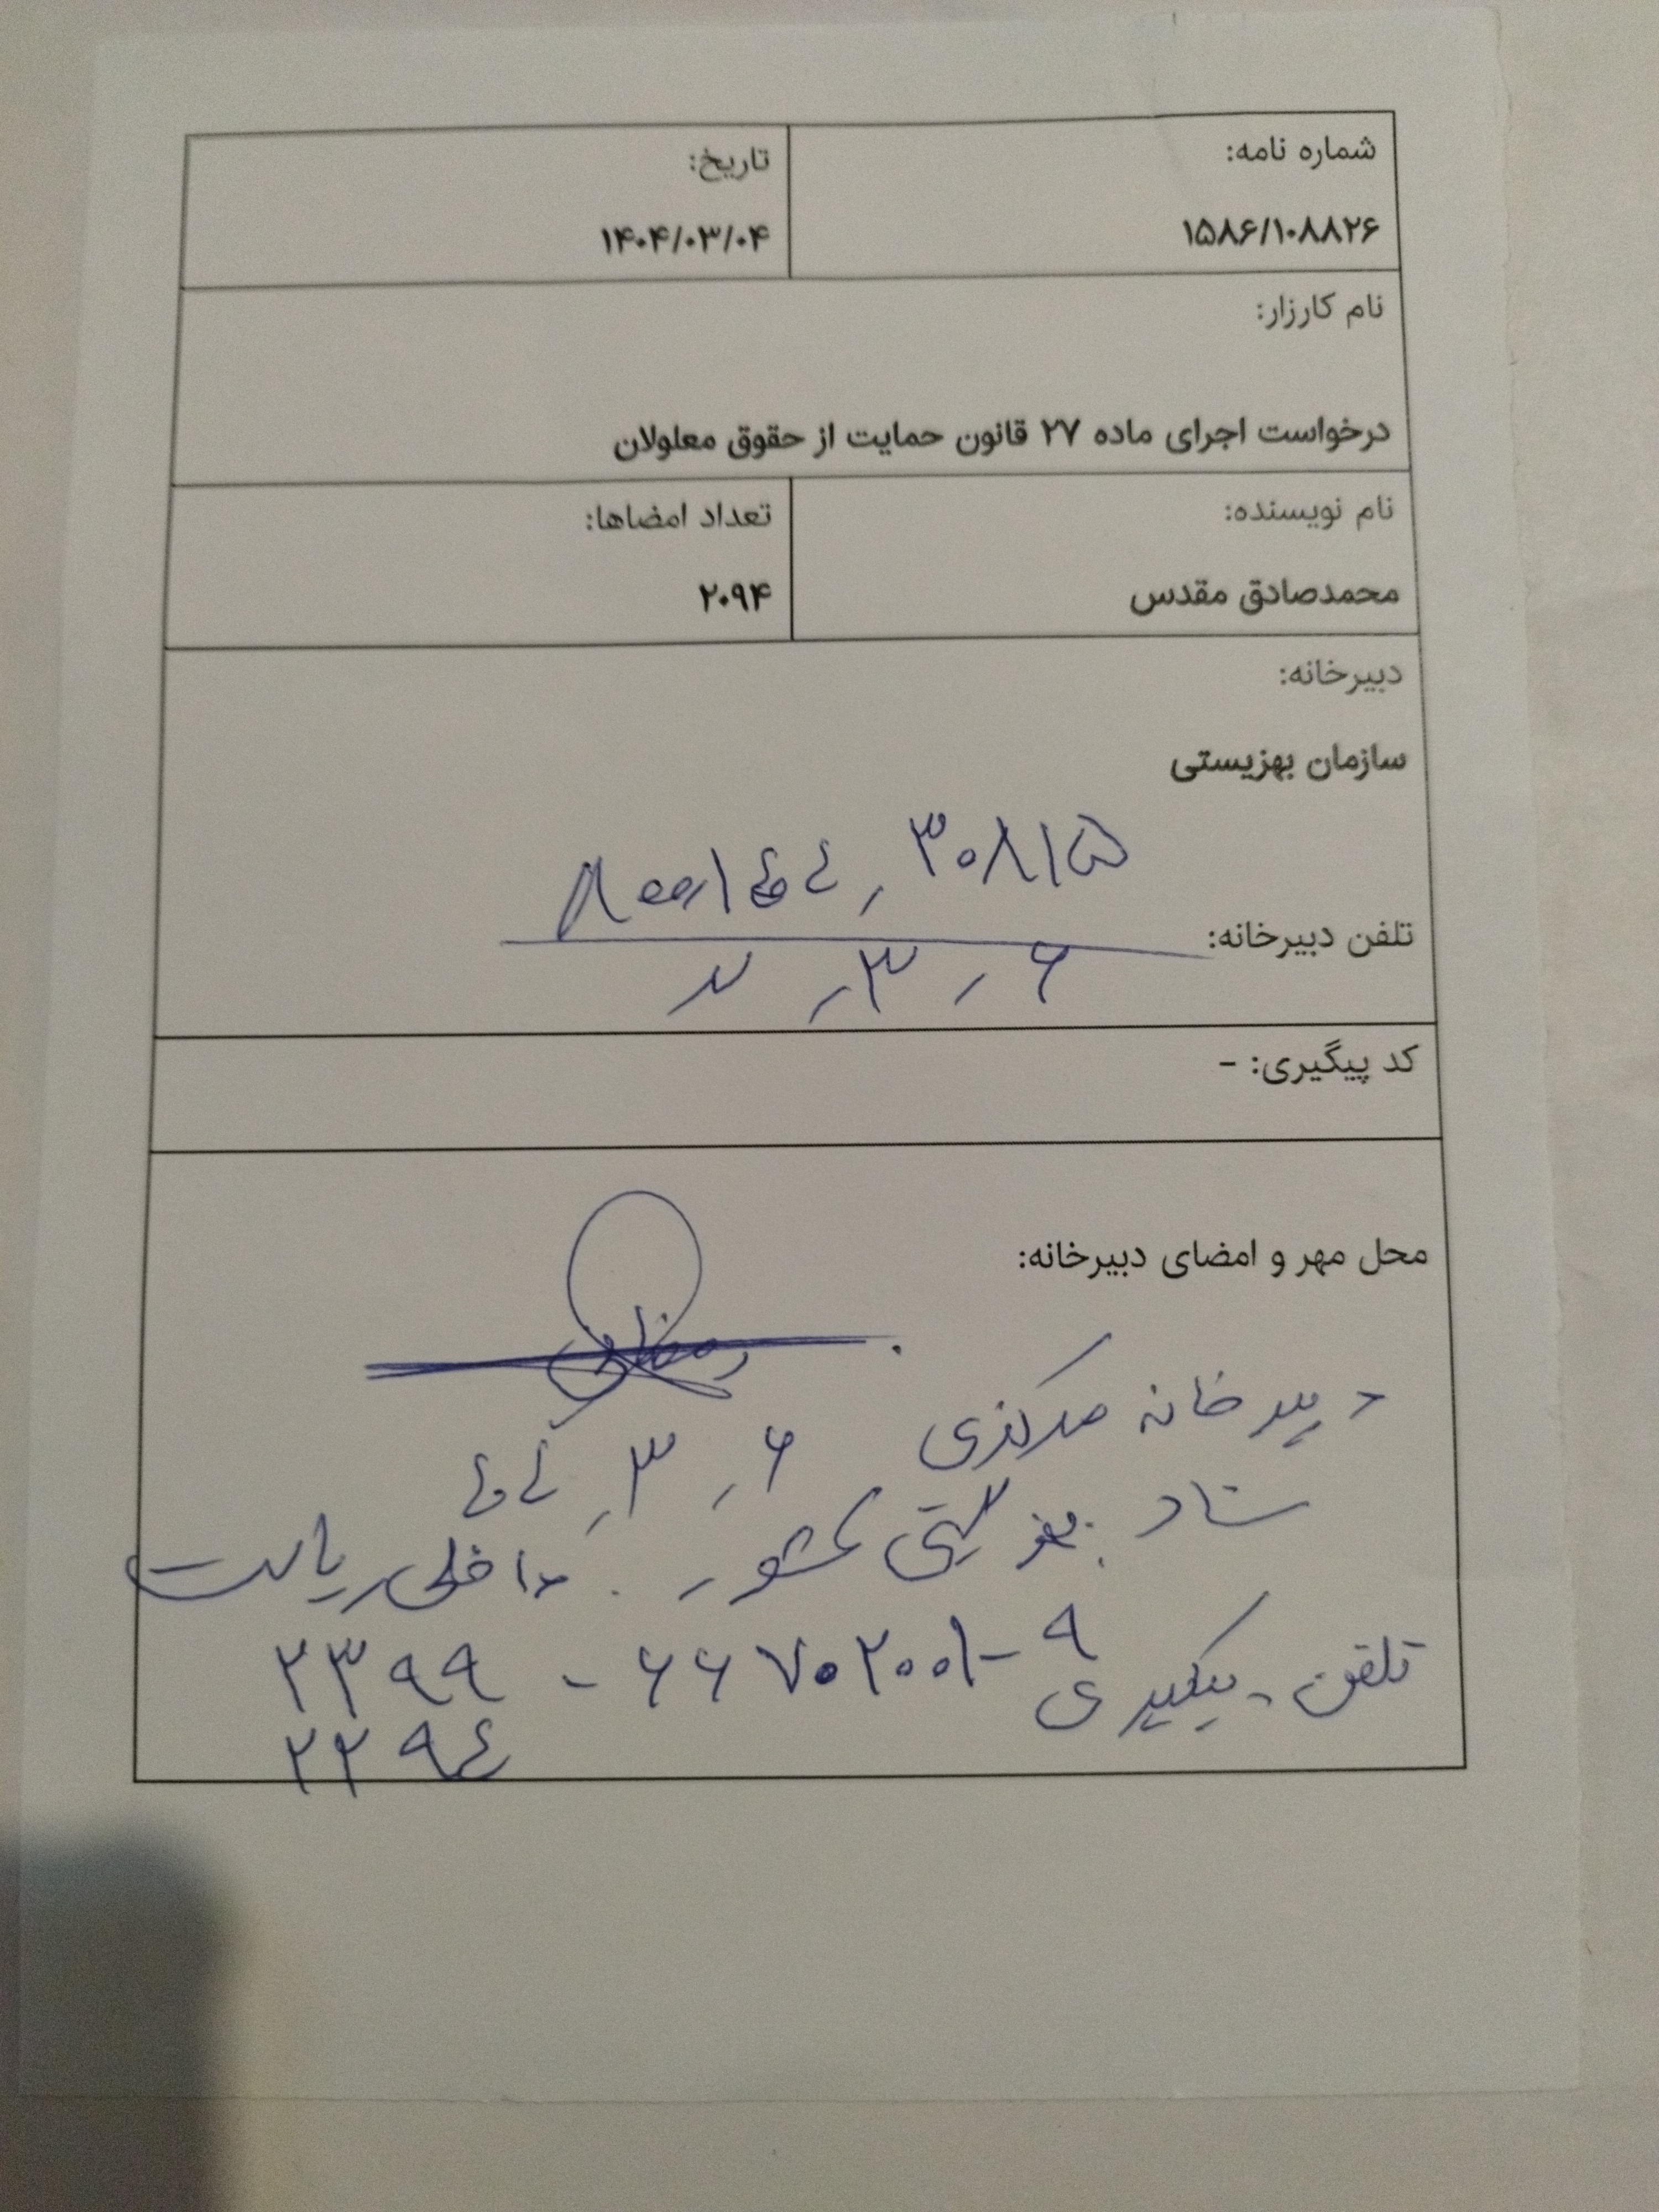 شماره نامه:
۱۵۸۶/۱۰۸۸۲۶
تاریخ:
۱۴۰۴/۰۳/۰۴
نام کارزار:
درخواست اجرای ماده ۲۷ قانون حمایت از حقوق معلولان
نام نویسنده:
محمدصادق مقدس
تعداد امضاها:
۲۰۹۴
دبیرخانه:
سازمان بهزیستی
۳۰۸۱۵
تلفن دبیرخانه:
۶ / ۳ /
کد پیگیری: -
محل مهر و امضای دبیرخانه:
دبیرخانه مرکزی ۶ / ۳ / ۴۰۴
ستاد بهزیستی کشور. داخلی ریاست
تلفن پیگیری ۶۶۷۰۲۰۰۱-۹ - ۲۳۹۹
۲۲۹۴